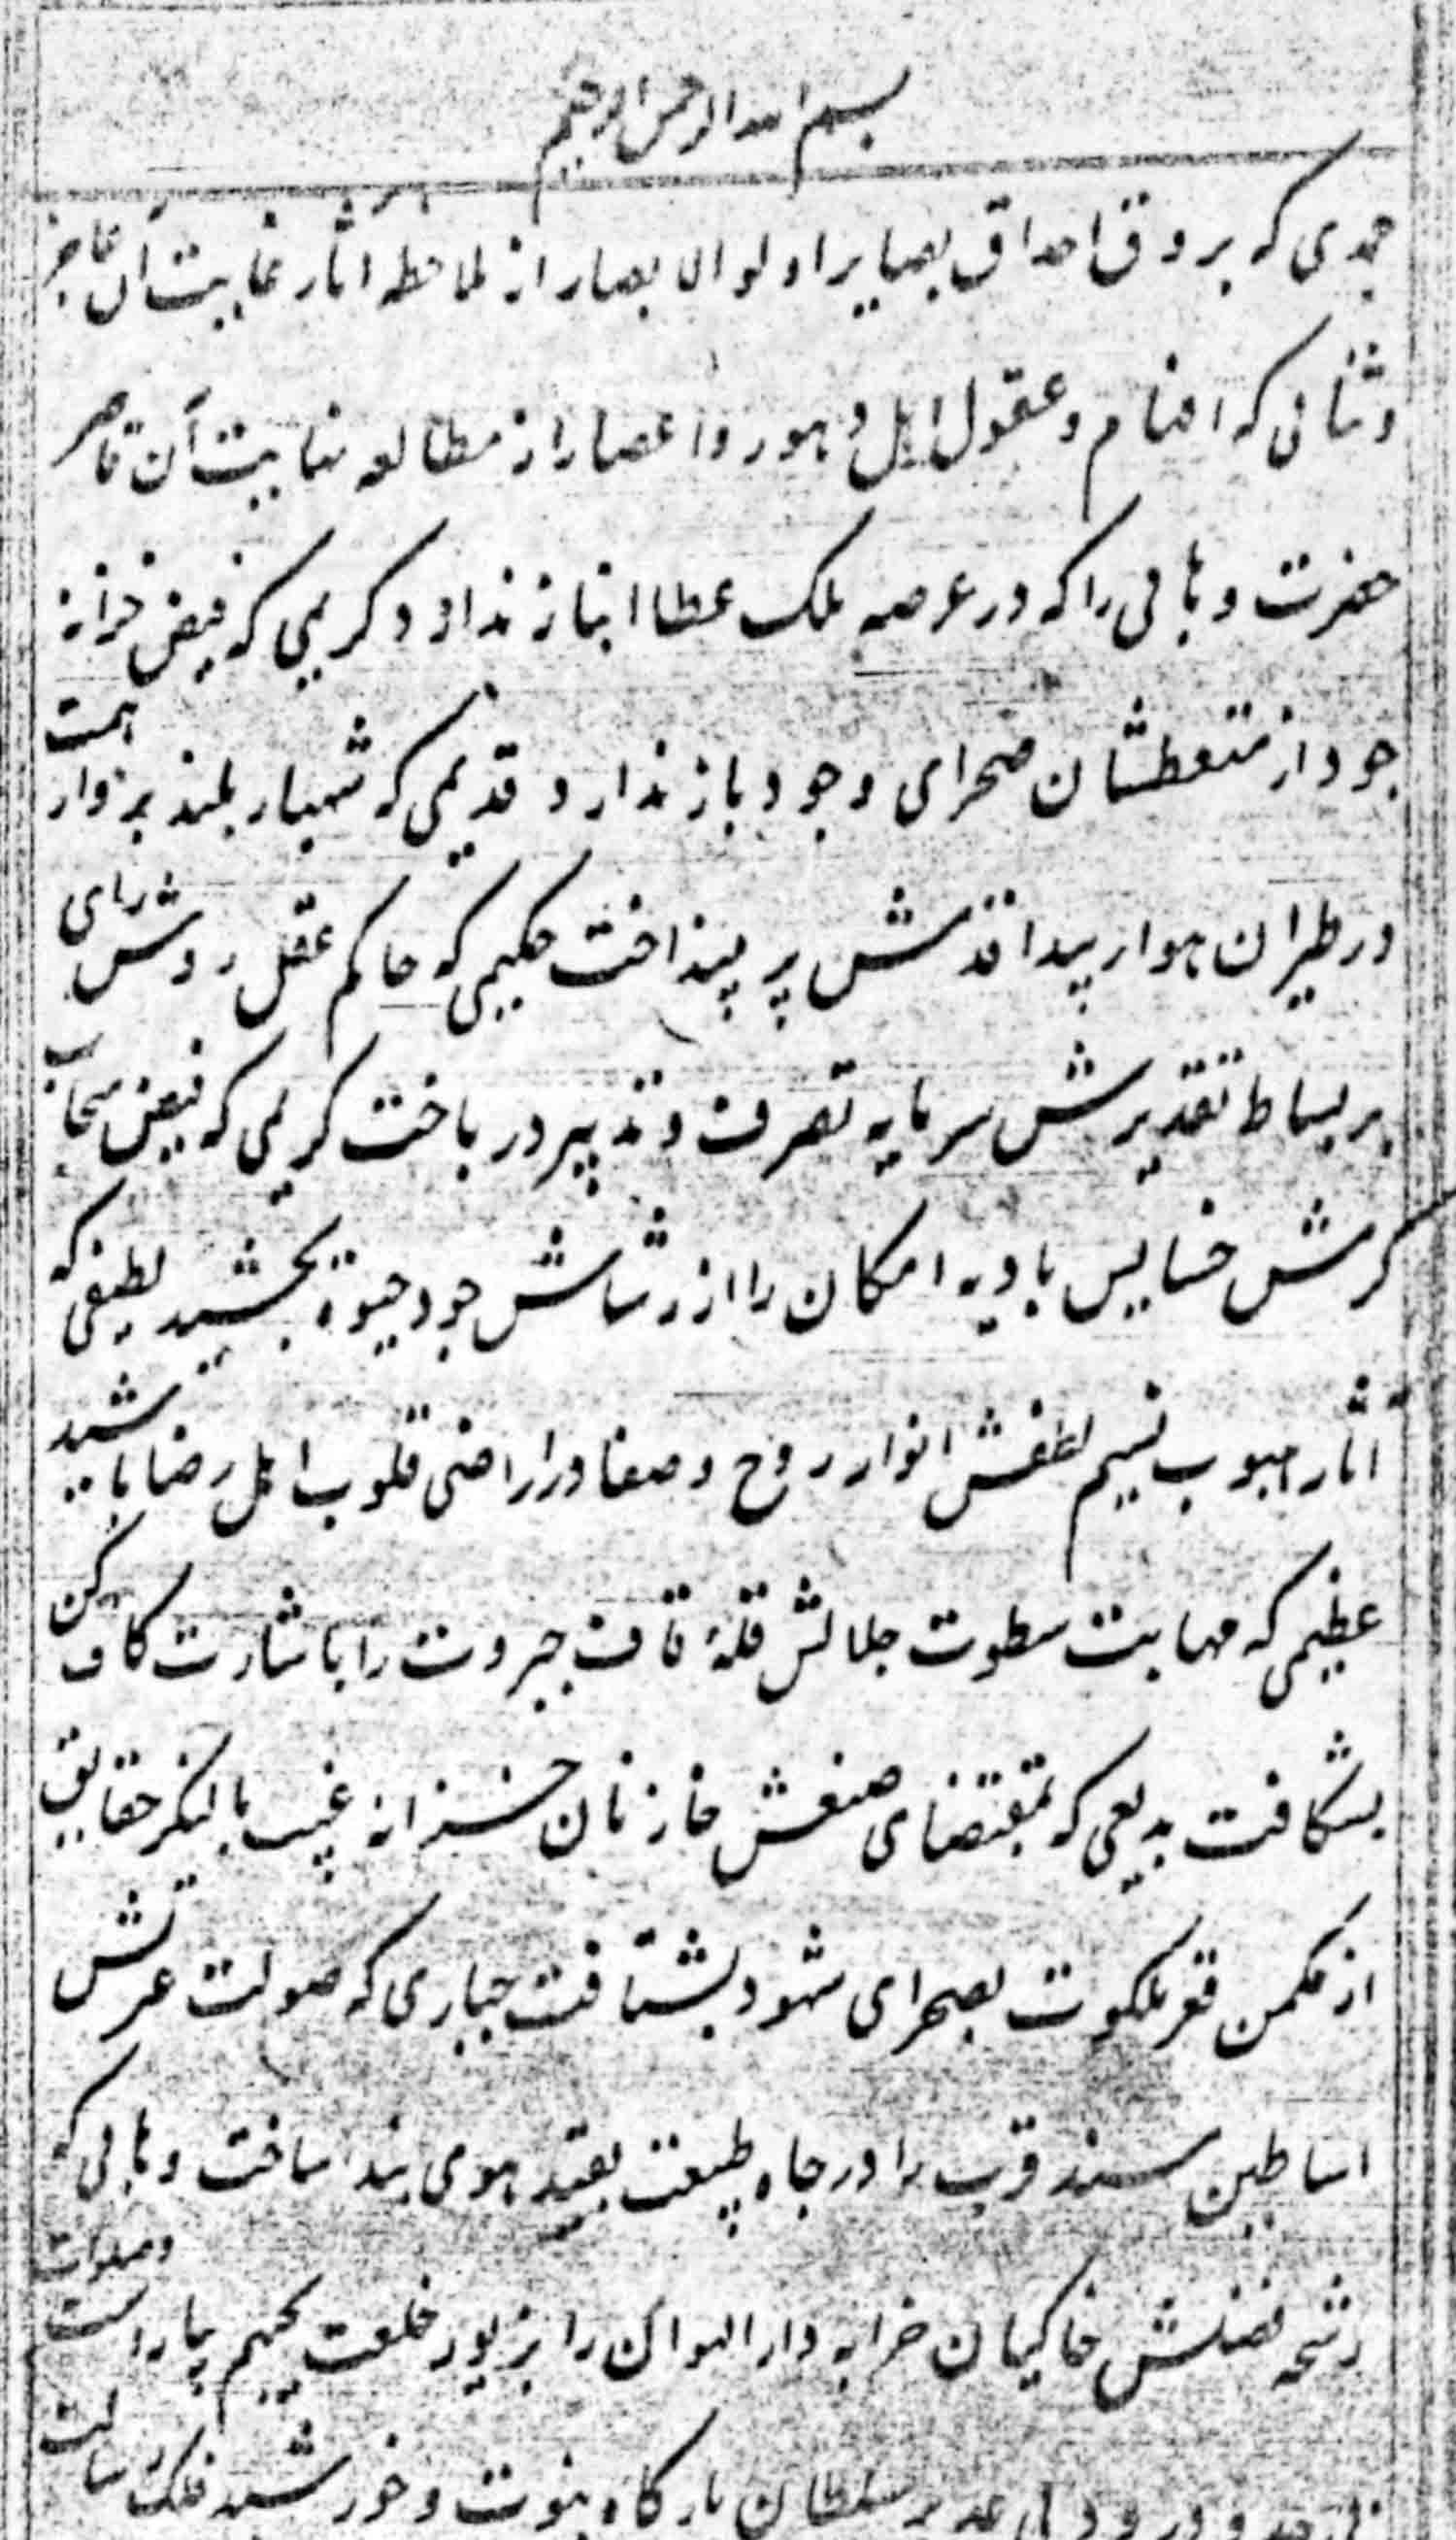 بسم الله الرحمن الرحیم
حمدی که بروق احداق بصایر اولوالابصار از ملاحظه آثار غایت آن عاجز
و ثنائی که افهام و عقول اهل دهور و اعصار از مطالعه نهایت آن قاصر
حضرت وهابی را که در عرصه ملک عطا انباز ندارد و کریمی که فیض خزانه
جود از متعطشان صحرای وجود باز ندارد و قدیمی که شهباز بلند پرواز همت
در طیران هوای بیداء قدمش پر بینداخت حکیمی که حاکم عقل روشن رای
بر بساط تقدیرش سرمایه تصرف و تدبیر در باخت کریمی که فیض سحاب
کرمش خسایس بادیه امکان را از رشاش جود حیوة بخشید لطیفی که
آثار هبوب نسیم لطفش انوار روح و صفا در اراضی قلوب اهل رضا پاشید
عظیمی که مهابت سطوت جلالش قلهٔ قاف جبروت را باشارت کاف کن
بشکافت بدیعی که بمقتضای صنعش خازنان خزانه غیب با لشکر حقایق
از مکمن قعر ملکوت بصحرای شهود بشتافت جباری که صولت عزتش
اساطین مسند قرب را در چاه طبیعت بقید هوی بند ساخت وهابی که
رشحه فضلش خاکیان خرابه دار الهوان را بزیور خلعت یحبهم بیاراست و صلوات
بی حد و درود بی عد بر سلطان بارگاه نبوت و خورشید فلک رسالت